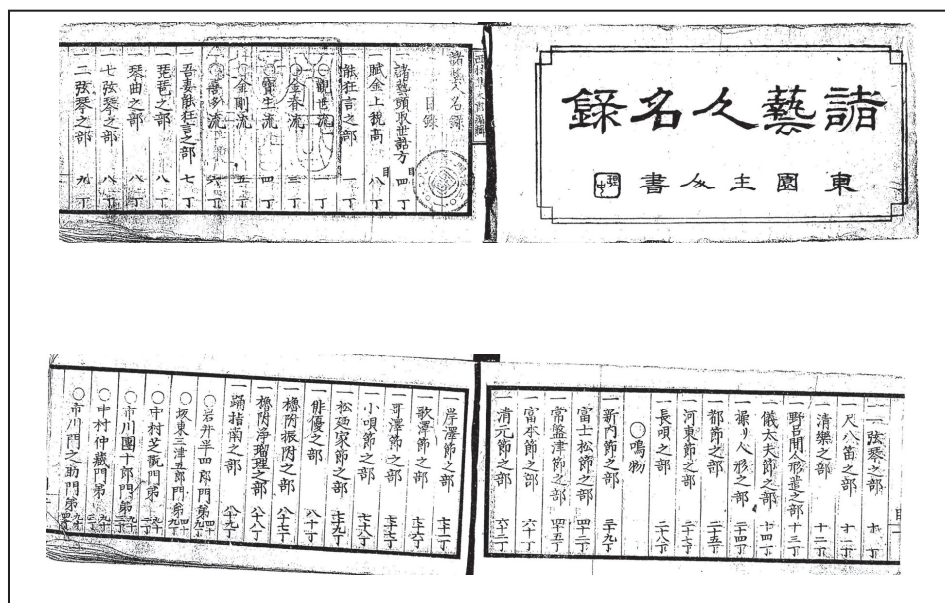 諸藝人名録
東園主人書
諸藝人名録
目録
一諸藝頭取世話方 目四丁
一賦金上税高 目八丁
一能狂言之部 一丁
○觀世流 一丁
○金春流 三丁
○寶生流 四丁
○金剛流 五丁
○喜多流 六丁
一吾妻能狂言之部 七丁
一琵琶之部 八丁
一琴曲之部 八丁
一七弦琴之部 九丁
一二弦琴之部 九丁
一一弦琴之部
一尺八笛之部 十一丁
一清樂之部 十二丁
一野呂間人形遣之部 十三丁
一儀太夫節之部 十四丁
一操リ人形之部 二十四丁
一都節之部 二十五丁
一河東節之部 二十七丁
一長唄之部 二十八丁
○鳴物
一新内節之部 三十九丁
一富士松節之部 四十二丁
一常盤津節之部 四十五丁
一富本節之部 六十丁
一清元節之部 六十二丁
一岸澤節之部
一歌澤節之部 七十六丁
一哥澤節之部 七十七丁
一小唄節之部 七十八丁
一松廼家節之部 七十九丁
一俳優之部 八十丁
一櫓附振附之部 八十七丁
一櫓附浄瑠理之部 八十八丁
一踊指南之部 八十九丁
○岩井半四郎門第
○坂東三津五郎門第
○中村芝翫門第
○市川團十郎門第
○中村仲藏門第
○市川門之助門第